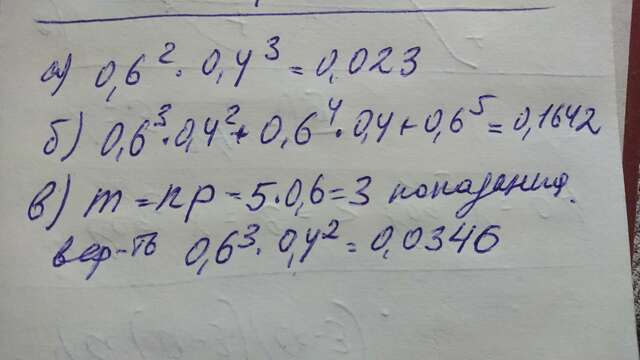 а) 0,6² · 0,4³ = 0,023
б) 0,6³ · 0,4² + 0,6⁴ · 0,4 + 0,6⁵ = 0,1642
в) m = np = 5 · 0,6 = 3 попадания.
вер-ть 0,6³ · 0,4² = 0,0346